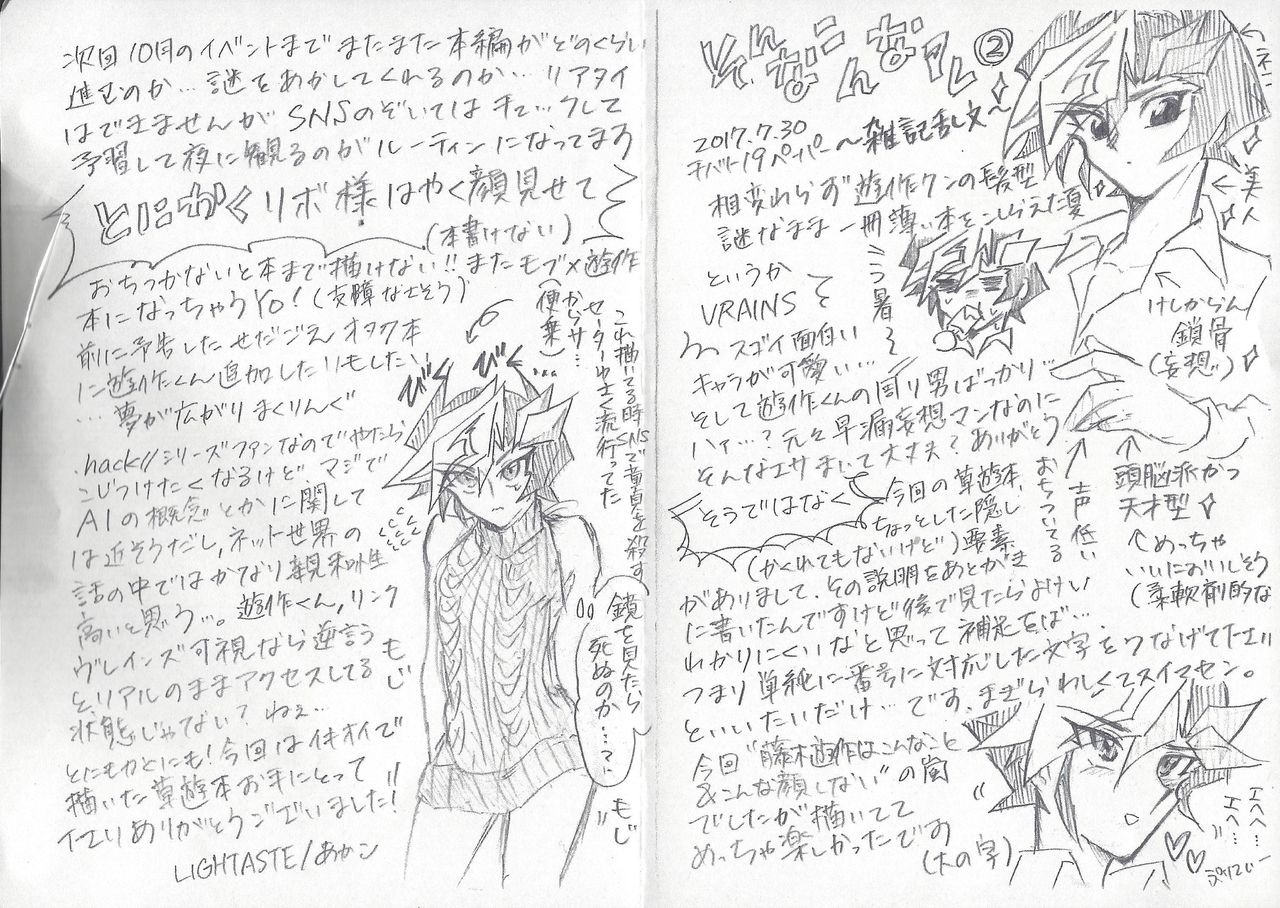 そんなこんなル ②
2017.7.30
チバト19ペーパー 〜雑記乱文〜
相変わらず遊作クンの髪型
謎なまま一冊薄い本をこしらえた夏
暑
というか
VRAINS
スゴイ面白い
キャラが可愛い…
そして遊作くんの周り男ばっかり…
ハァ…?元々早漏妄想マンなのに
そんなエサまいて大丈夫?ありがとう
そうではなく
今回の草遊本、
ちょっとした隠し
(かくれてもないけど)要素
がありまして、その説明をあとがき
に書いたんですけど後で見たらよけい
わかりにくいなと思って補足をば…
つまり単純に番号に対応した文字をつなげてただ
といいたいだけ…です、まぎらわしくてスイマセン。
今回“藤木遊作はこんなこと
&こんな顔しない”の嵐
でしたが描いてて
めっちゃ楽しかったです
(大の字)
美人
けしからん
鎖骨
(妄想)
頭脳派かつ
天才型
声低い
おちついてる
めっちゃ
いいにおいしそう
(柔軟剤的な
エヘヘ…
エヘ…
次回10月のイベントまでまたまた本編がどのくらい
進むのか…謎をあかしてくれるのか…リアタイ
はできませんがSNSのぞいてはキャ…うして
予習して夜に観るのがルーティンになってます
とにかくリボ様はやく顔見せて
(本書けない)
おちつかないと本まで描けない!!またモブ×遊作
本になっちゃうYO!(支障なさそう)
前に予告したせだごえんオタク本
に遊作くん追加したりもしたい
…夢が広がりまくりんぐ
.hack//シリーズファンなのでやたら
こじつけたくなるけどマジで
AIの概念とかに関して
は近そうだし、ネット世界の
話の中ではかなり親和性
高いと思う…。遊作くん、リンク
ヴレインズ可視なら逆言う
と、リアルのままアクセスしてる
状態じゃない?ねぇ…
とにもかくにも!今回はイキオイで
描いた草遊本お手にとって
イエリありがとうございました!!
LIGHTASTE/あかン
これ描いてる時SNSで童貞を殺す
セーターわさく流行ってた
(便乗)
びくびく…
鎖を見たら
死ぬのか…
もじ
もじ